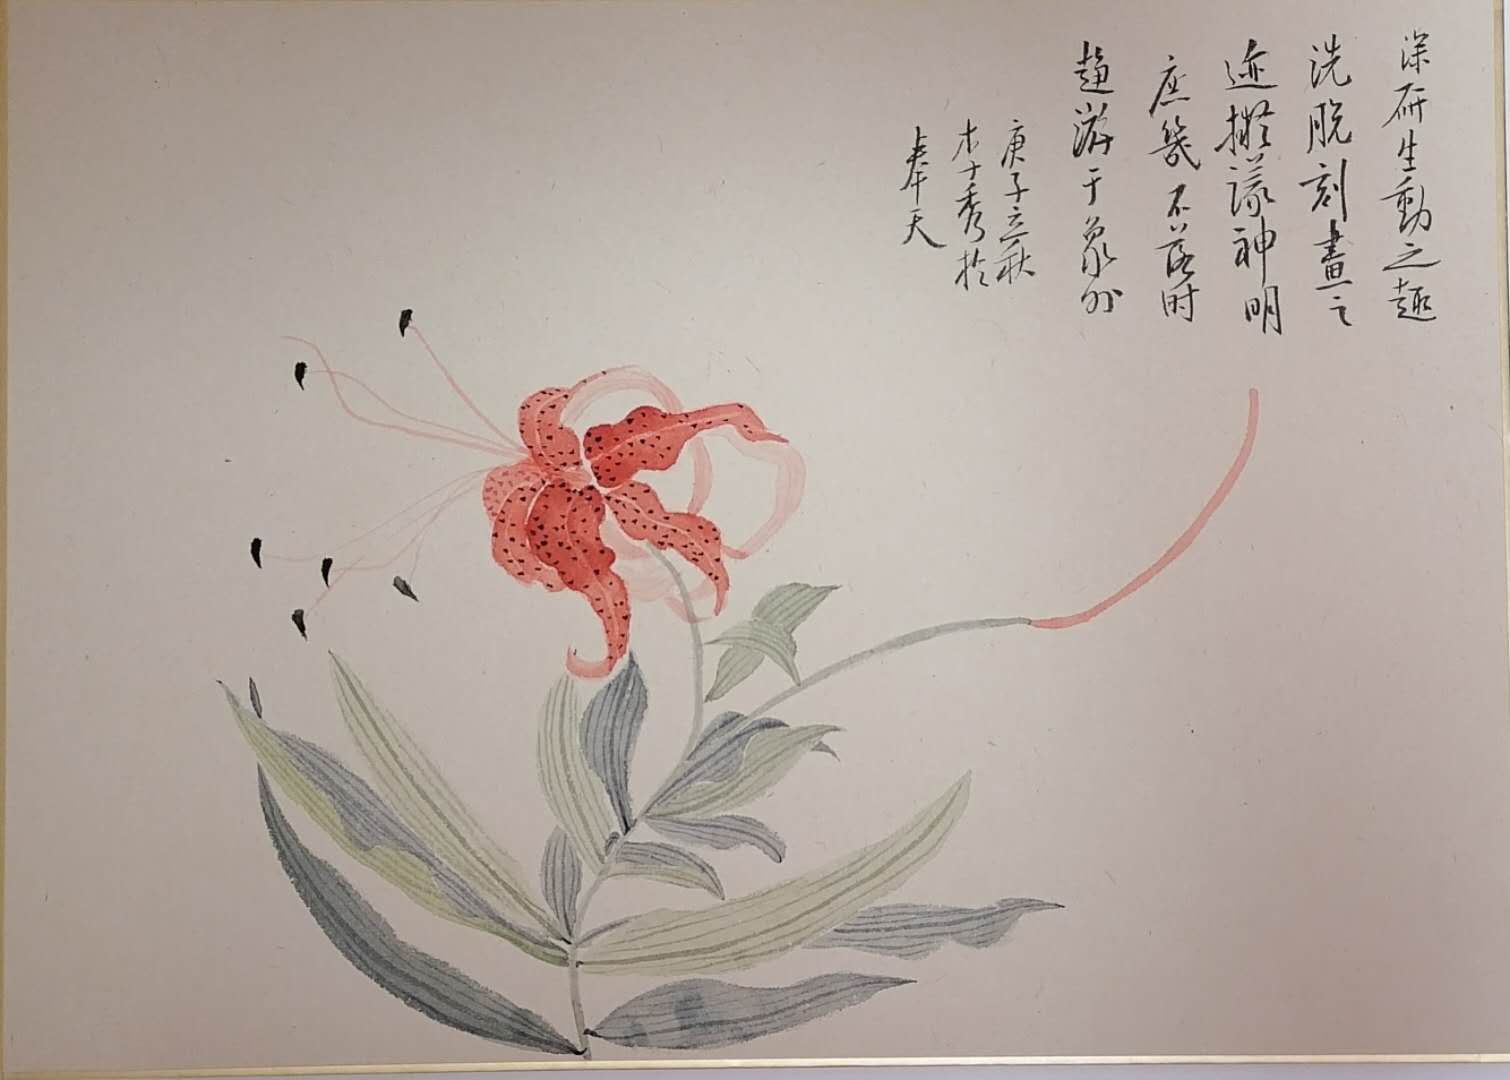 深研生動之趣
洗脫刻畫之
迹擬議神明
庶幾不落时
趨游于象外
庚子立秋
木子秀於
奉天